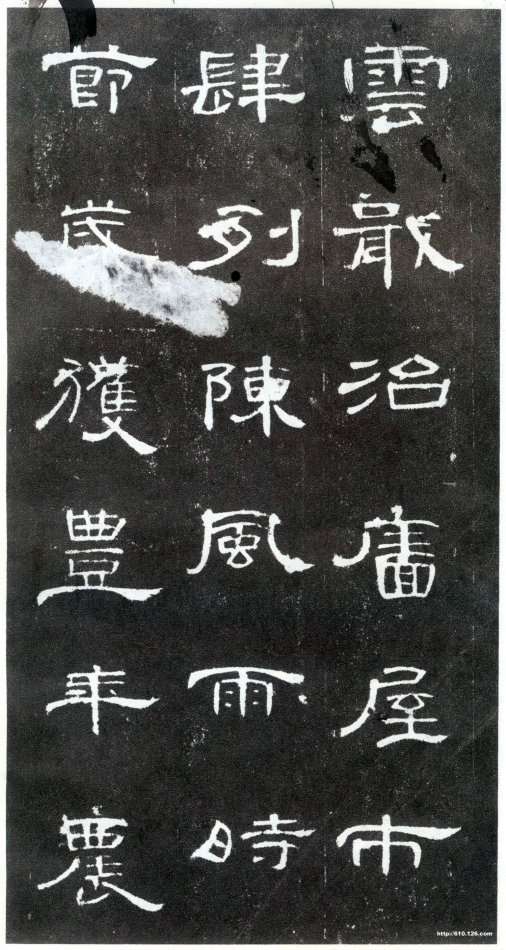 雲散治廧屋市
肆列陳風雨時
節歲獲豐年農
http://610.126.com